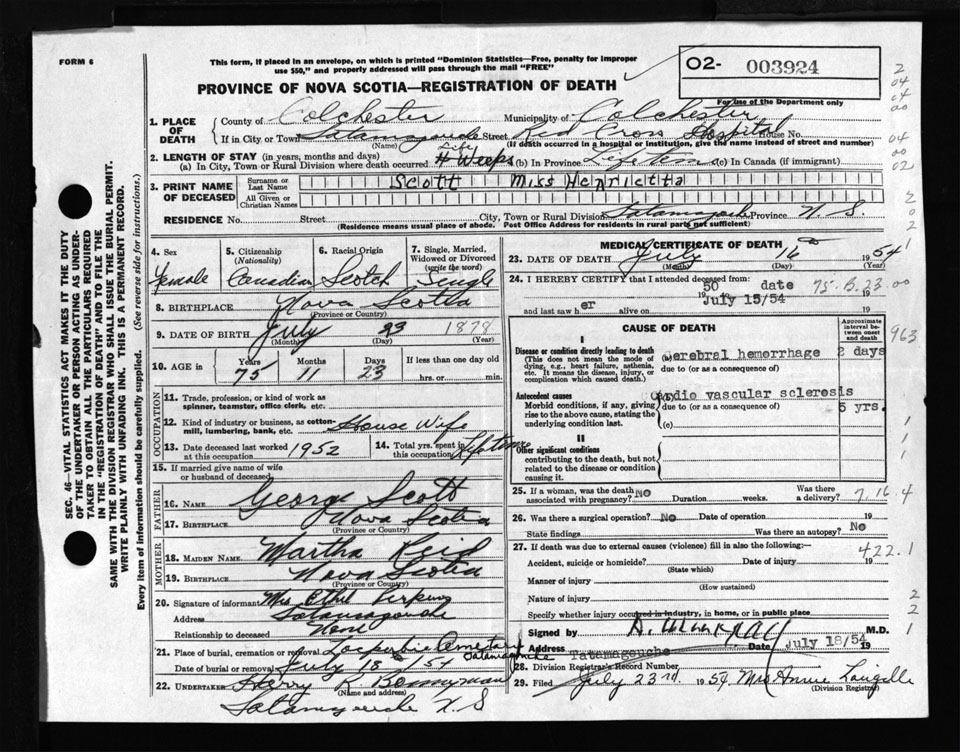 FORM 6
This form, if placed in an envelope, on which is printed "Dominion Statistics—Free, penalty for improper
use $50," and properly addressed will pass through the mail "FREE"
PROVINCE OF NOVA SCOTIA—REGISTRATION OF DEATH
02- 003924
For use of the Department only
1. PLACE OF DEATH
County of Colchester Municipality of Colchester
If in City or Town Tatamagouche Street Red Cross Hospital House No.
(Name) (If death occurred in a hospital or institution, give the name instead of street and number)
2. LENGTH OF STAY (in years, months and days) Life
(a) In City, Town or Rural Division where death occurred 4 Weeks (b) In Province Life time (c) In Canada (if immigrant)
3. PRINT NAME OF DECEASED
Surname or Last Name Scott Miss Henrietta
All Given or Christian Names
RESIDENCE No. Street City, Town or Rural Division Tatamagouche Province N. S.
(Residence means usual place of abode. Post Office Address for residents in rural parts not sufficient)
4. Sex Female
5. Citizenship (Nationality) Canadian
6. Racial Origin Scotch
7. Single, Married, Widowed or Divorced (write the word) Single
8. BIRTHPLACE Nova Scotia
(Province or Country)
9. DATE OF BIRTH July 23 1878
(Month) (Day) (Year)
10. AGE in Years 75 Months 11 Days 23 If less than one day old
hrs. or min.
OCCUPATION
11. Trade, profession, or kind of work as spinner, teamster, office clerk, etc.
12. Kind of industry or business, as cotton-mill, lumbering, bank, etc. House Wife
13. Date deceased last worked at this occupation 1952
14. Total yrs. spent in this occupation Life time
15. If married give name of wife or husband of deceased.
FATHER
16. NAME George Scott
17. BIRTHPLACE Nova Scotia
(Province or Country)
MOTHER
18. MAIDEN NAME Martha Reid
19. BIRTHPLACE Nova Scotia
(Province or Country)
20. Signature of informant Mrs Ethel Perkins
Address Tatamagouche
Relationship to deceased None
21. Place of burial, cremation or removal Cemetary Tatamagouche
Date of burial or removal July 18 / 54
22. UNDERTAKER Harry R. Bonnyman
(Name and address)
Tatamagouche N. S
MEDICAL CERTIFICATE OF DEATH
23. DATE OF DEATH July 16 1954
(Month) (Day) (Year)
24. I HEREBY CERTIFY that I attended deceased from:
50 date
19 to 19
and last saw her alive on July 15/54 19
75.B.23.00
CAUSE OF DEATH
Approximate interval between onset and death
I
Disease or condition directly leading to death
(This does not mean the mode of dying, e.g., heart failure, asthenia, etc. It means the disease, injury, or complication which caused death.)
(a) cerebral hemorrhage 2 days
due to (or as a consequence of)
Antecedent causes
Morbid conditions, if any, giving rise to the above cause, stating the underlying condition last.
cardio vascular sclerosis
due to (or as a consequence of) 5 yrs.
(c)
II
Other significant conditions
contributing to the death, but not related to the disease or condition causing it.
25. If a woman, was the death associated with pregnancy? No Duration weeks. Was there a delivery?
7.16.4
26. Was there a surgical operation? No Date of operation 19
State findings Was there an autopsy? No
27. If death was due to external causes (violence) fill in also the following:—
Accident, suicide or homicide? Date of injury 19
(State which)
422.1
Manner of injury
(How sustained)
Nature of injury
Specify whether injury occurred in industry, in home, or in public place
Signed by M.D.
Address Tatamagouche Date July 18/54 19
28. Division Registrar's Record Number
29. Filed July 23rd 1954 Mrs Annie Langille
(Division Registrar)
963
SEC. 46—VITAL STATISTICS ACT MAKES IT THE DUTY
OF THE UNDERTAKER OR PERSON ACTING AS UNDER-
TAKER TO OBTAIN ALL THE PARTICULARS REQUIRED
IN THE "REGISTRATION OF DEATH" AND TO FILE THE
SAME WITH THE DIVISION REGISTRAR WHO SHALL ISSUE THE BURIAL PERMIT.
WRITE PLAINLY WITH UNFADING INK. THIS IS A PERMANENT RECORD.
Every item of information should be carefully supplied. (See reverse side for instructions.)